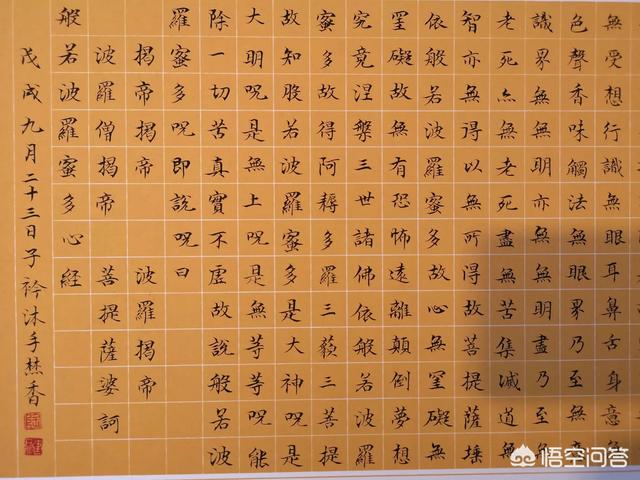 無受想行識無眼耳鼻舌身意無
色聲香味觸法無眼界乃至無意
識界無無明亦無無明盡乃至無
老死亦無老死盡無苦集滅道無
智亦無得以無所得故菩提薩埵
依般若波羅蜜多故心無罣礙無
罣礙故無有恐怖遠離顛倒夢想
究竟涅槃三世諸佛依般若波羅
蜜多故得阿耨多羅三藐三菩提
故知般若波羅蜜多是大神咒是
大明咒是無上咒是無等等咒能
除一切苦真實不虛故說般若波
羅蜜多咒即說咒曰
揭帝揭帝 波羅揭帝
波羅僧揭帝 菩提薩婆訶
般若波羅蜜多心経
戊戌九月二十三日子衿沐手焚香
悟空问答